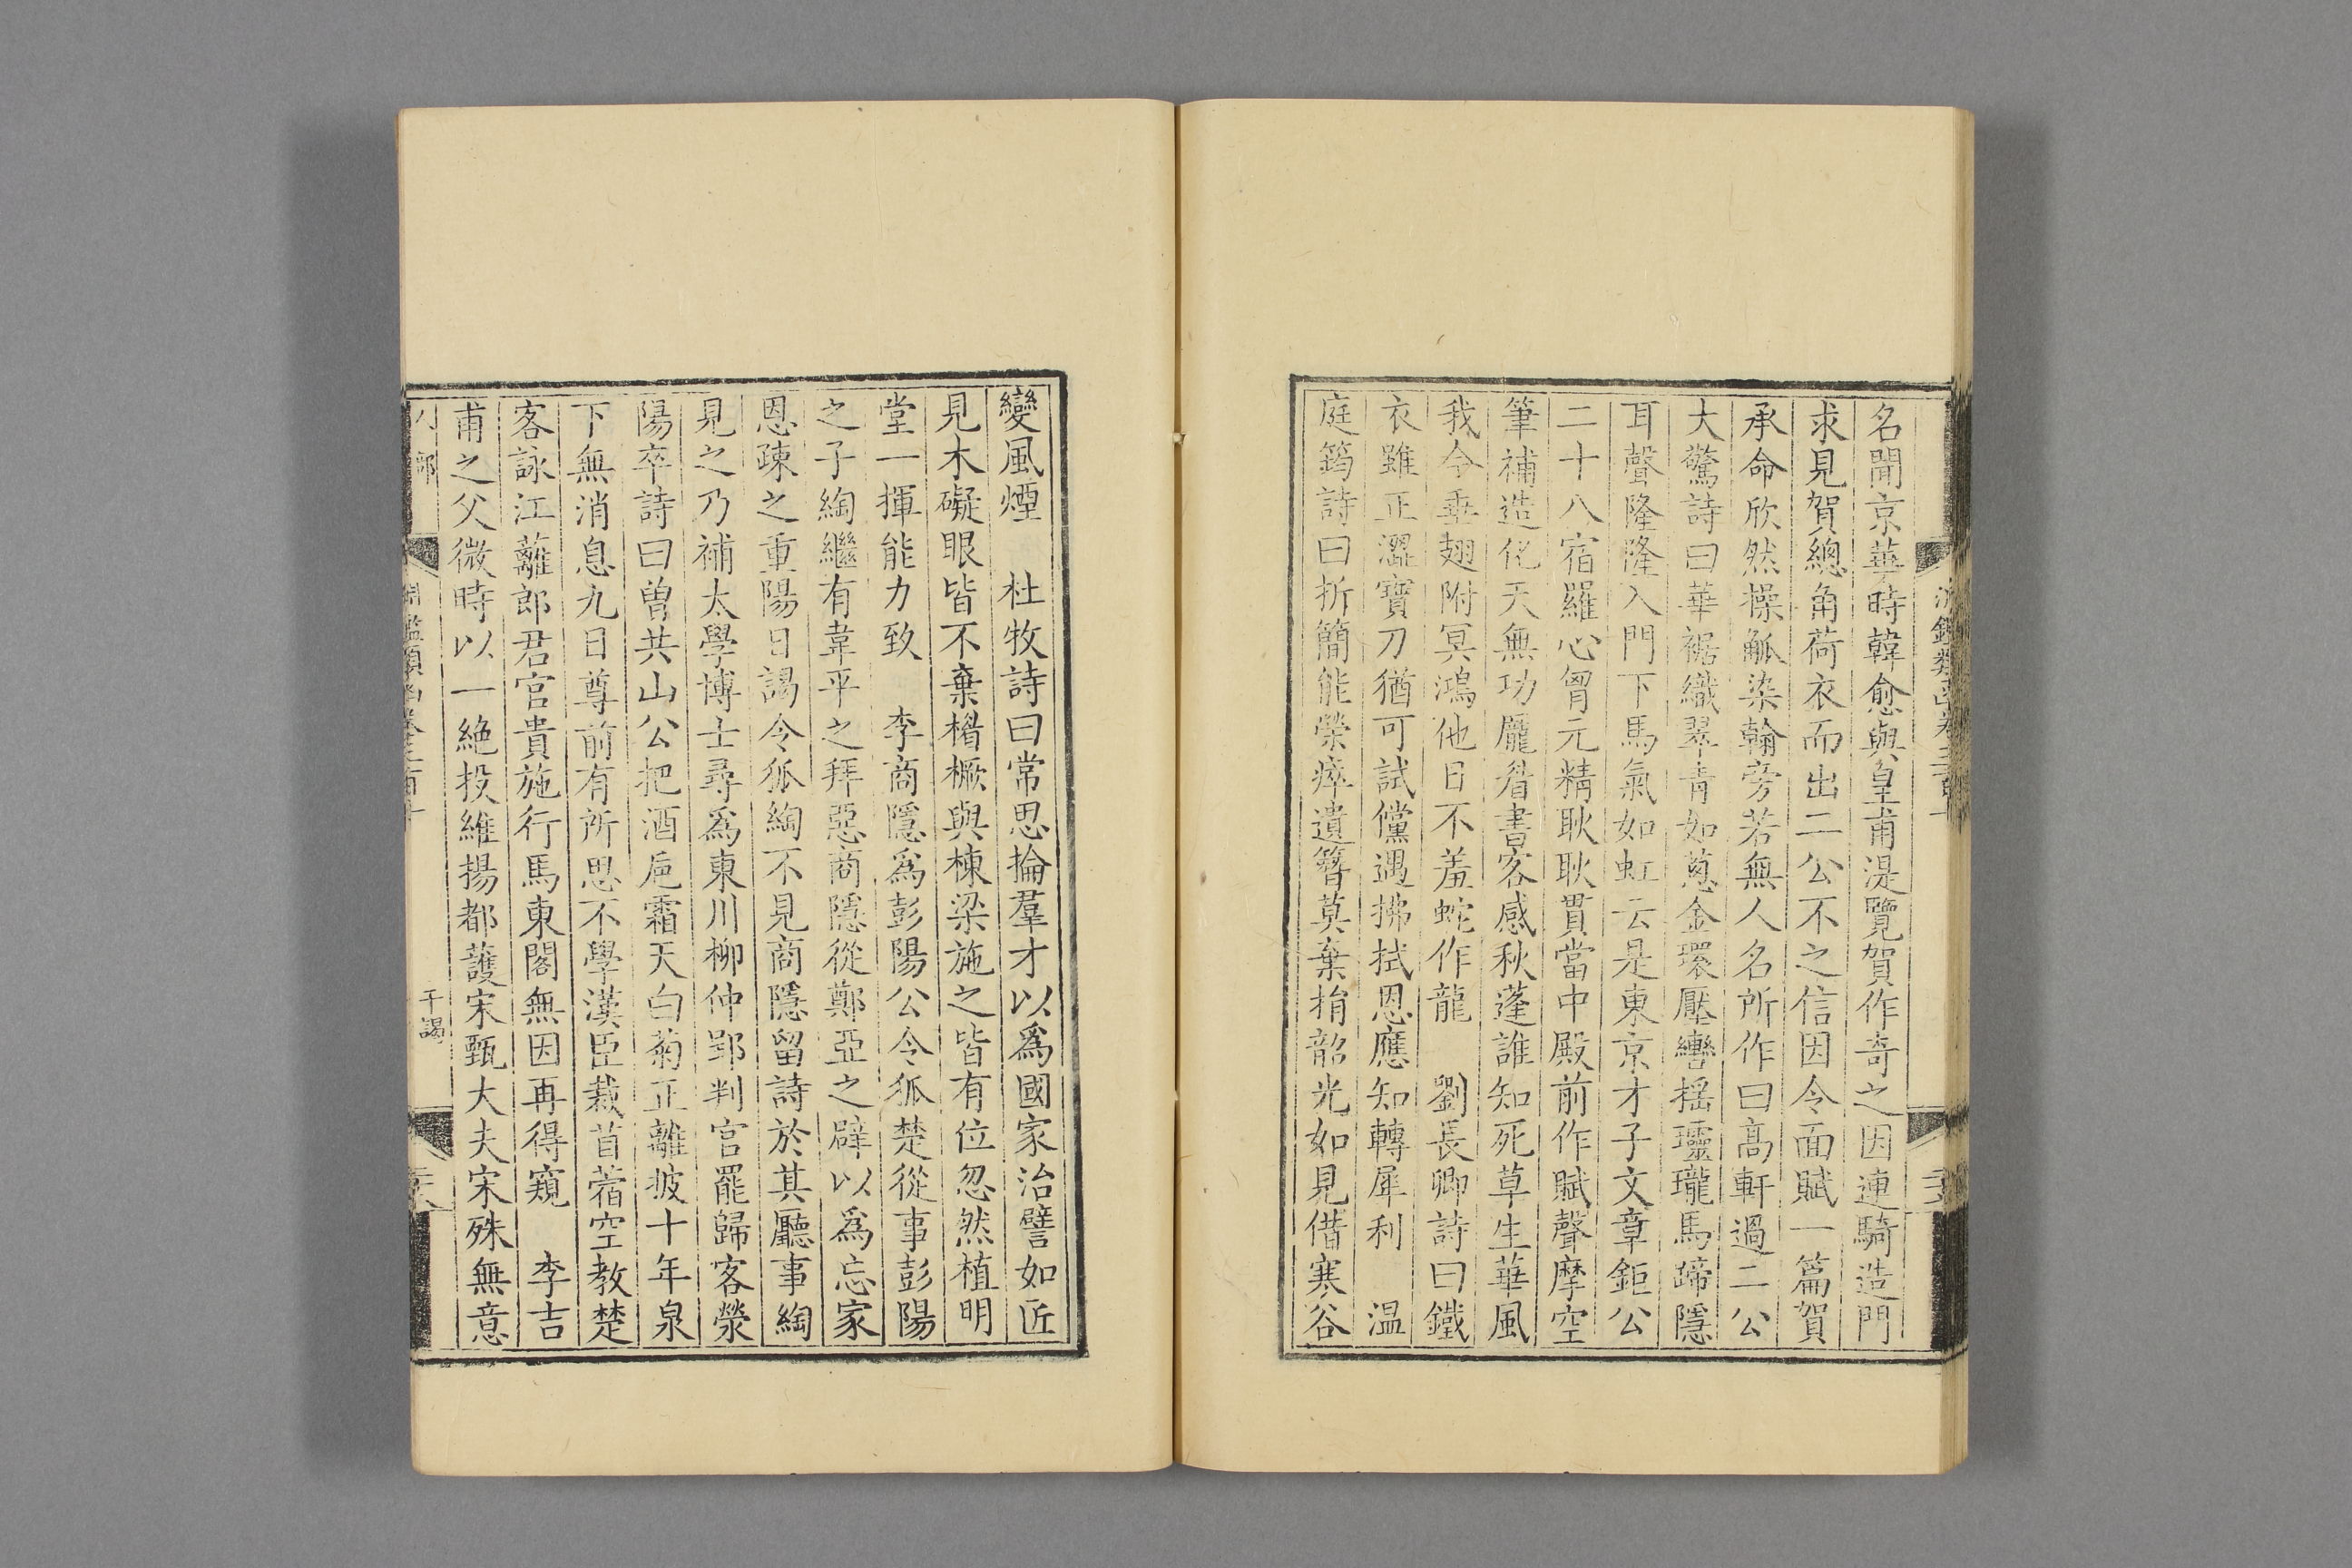 名聞京華時韓愈與皇甫湜覽賀作奇之因連騎造門
求見賀總角荷衣而出二公不之信因令面賦一篇賀
承命欣然操觚染翰旁若無人名所作曰高軒過二公
大驚詩曰華裾織翠青如葱金環壓轡揺瓏瓏馬蹄隱
耳聲隆隆入門下馬氣如虹云是東京才子文章鉅公
二十八宿羅心胷元精耿耿貫當中殿前作賦聲摩空
筆補造化天無功龎眉書客感秋蓬誰知死草生華風
我今垂翅附冥鴻他日不羞蛇作龍　劉長卿詩曰鐵
衣雖正澀寳刀猶可試儻遇拂拭恩應知轉犀利　温
庭筠詩曰折簡能榮瘁遺簪莫棄捐韶光如見借寒谷
變風煙　杜牧詩曰常思掄羣才以爲國家治譬如匠
見木礙眼皆不棄楿橛與棟梁施之皆有位忽然植明
堂一揮能力致　李商隱爲彭陽公令狐楚從事彭陽
之子綯繼有韋平之拜惡商隱從鄭亞之辟以爲忘家
恩疎之重陽日謁令狐綯不見商隱留詩於其廳事綯
見之乃補太學博士尋爲東川柳仲郢判官罷歸客滎
陽卒詩曰曽共山公把酒巵霜天白菊正離披十年泉
下無消息九日尊前有所思不學漢臣栽苜蓿空教楚
客詠江蘺郎君官貴施行馬東閣無因再得窺　李吉
甫之父微時以一絶投維揚都護宋甄大夫宋殊無意
人部
淵鑑類函卷三百十
干謁